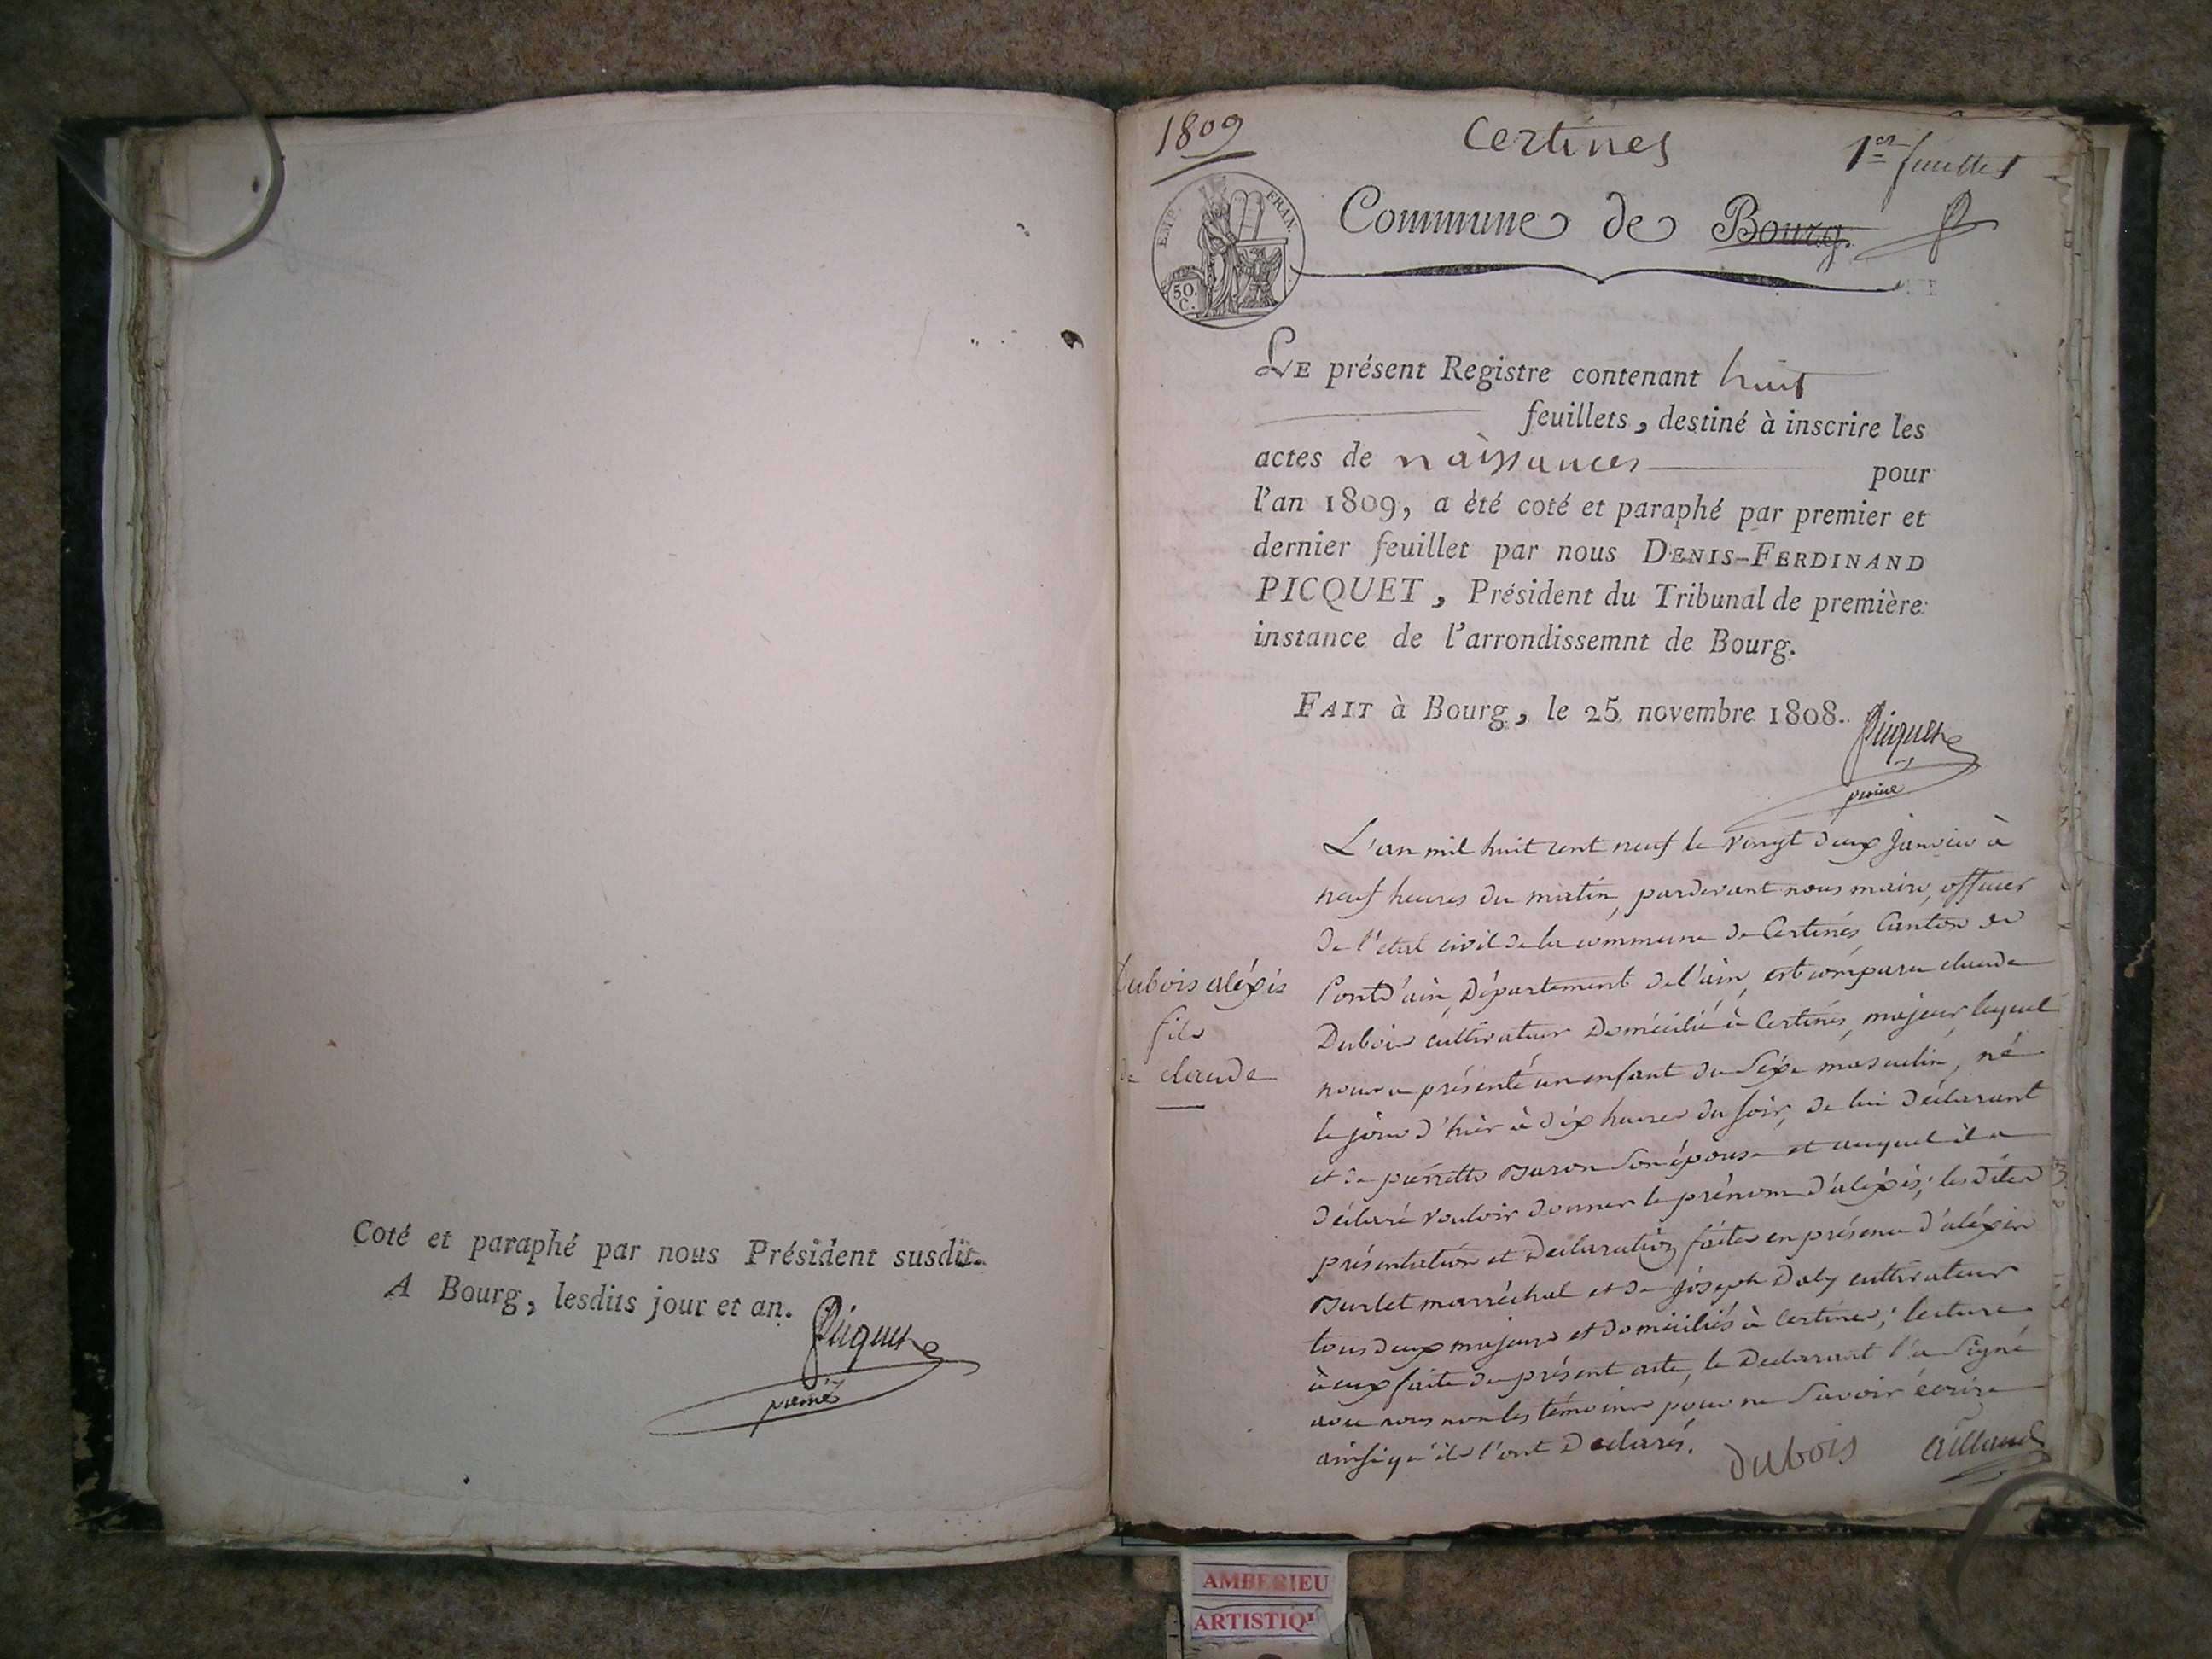 Coté et paraphé par nous Président susdit.
A Bourg, lesdits jour et an.
Picquet
1809
Certines
1er feuillet
EMP. FRAN.
50.
C.
Commune de Bourg.
LE présent Registre contenant huit
feuillets, destiné à inscrire les
actes de naissances pour
l'an 1809, a été coté et paraphé par premier et
dernier feuillet par nous DENIS-FERDINAND
PICQUET, Président du Tribunal de première
instance de l'arrondissemnt de Bourg.
FAIT à Bourg, le 25 novembre 1808.
Picquet
L'an mil huit cent neuf le vingt deux janvier à
neuf heures du matin, pardevant nous maire, officier
de l'etat civil de la commune de Certines Canton de
Pontd'ain, Département de l'ain, est comparu claude
Dubois cultivateur Domicilié à Certines, majeur lequel
nous a présenté un enfant du Sexe masculin, né
le jour d'hier à dix heures du soir, de lui déclarant
et de pierrette Buron son épouse et auquel il a
déclaré vouloir donner le prénom d'aléxis; les dites
présentation et declaration faites en présence d'aléxis
Burlet marréchal et de joseph Daly cultivateur
tous deux majeurs et domiciliés à Certines; lecture
à eux faite du présent acte, le Declarant l'a Signé
avec nous non les témoins pour ne Savoir écrire
ainsi qu'ils l'ont Declarés.
dubois
Dubois aléxis
fils
de claude
AMBERIEU
ARTISTIQ